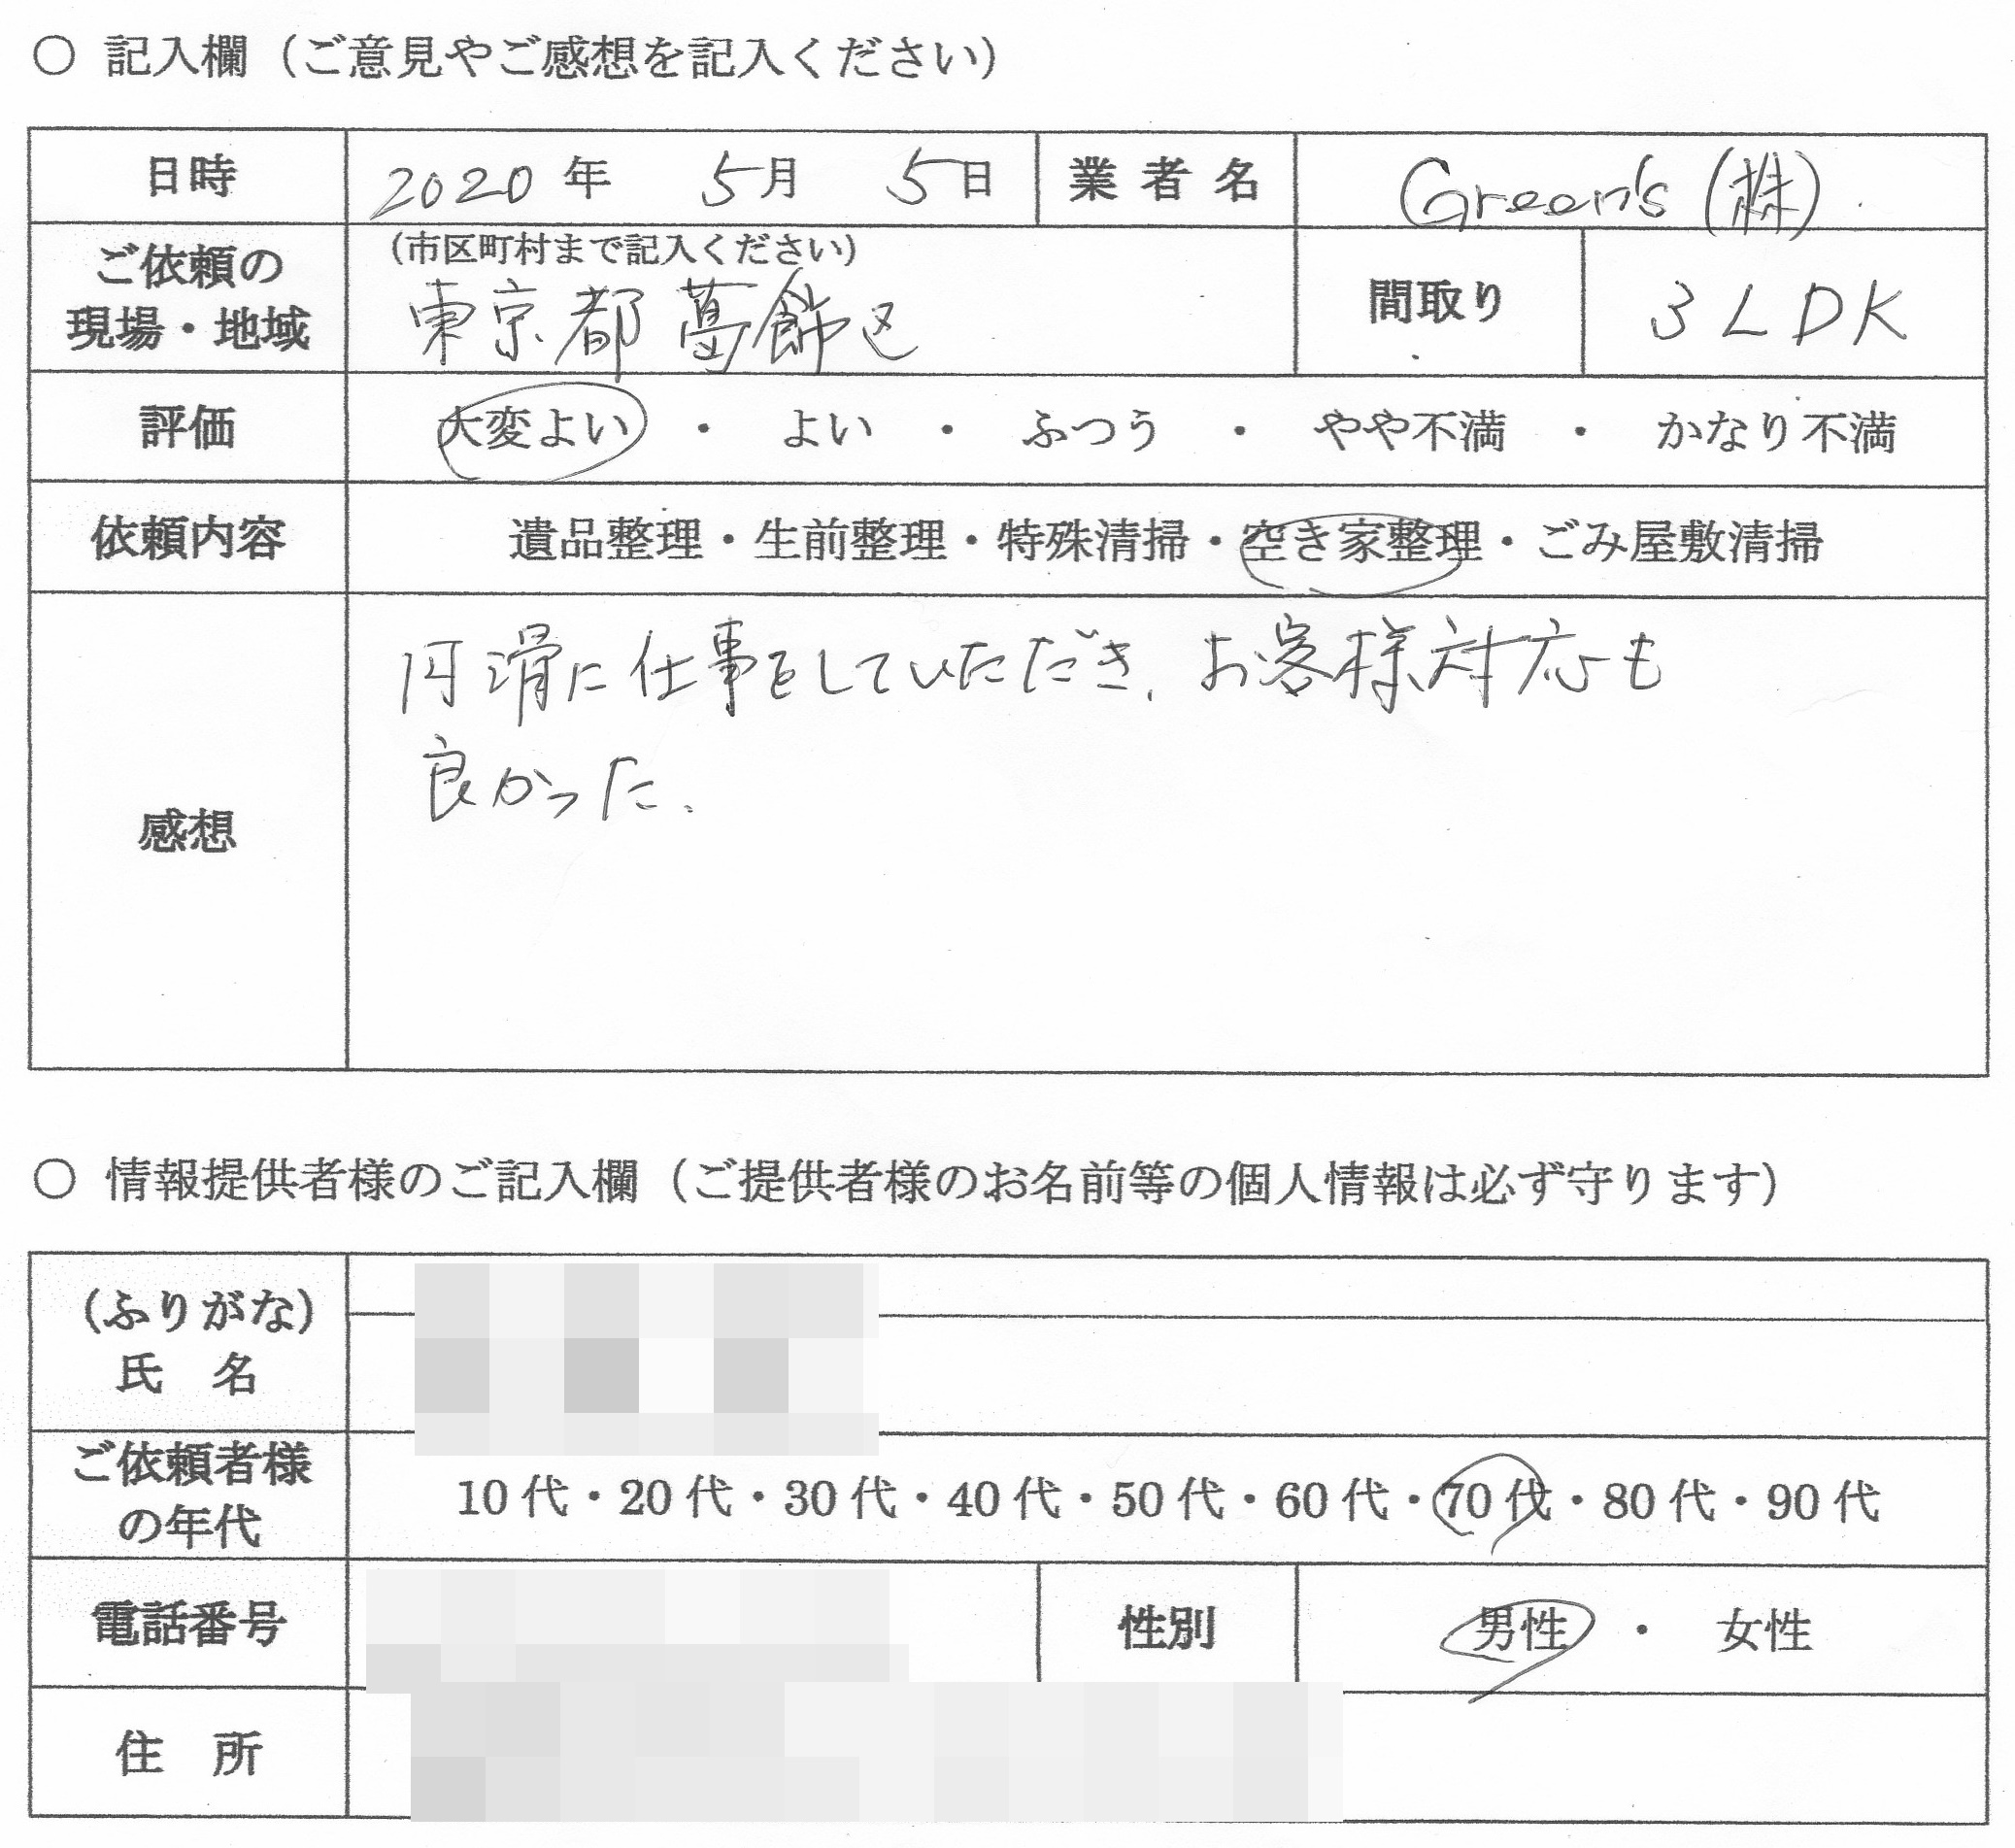 ○ 記入欄（ご意見やご感想を記入ください）
日時 2020 年 5月 5日 業者名 Green's (株)
ご依頼の
現場・地域
（市区町村まで記入ください）
東京都葛飾区
間取り 3LDK
評価 大変よい ・ よい ・ ふつう ・ やや不満 ・ かなり不満
依頼内容 遺品整理・生前整理・特殊清掃・空き家整理・ごみ屋敷清掃
感想
円滑に仕事をしていただき、お客様対応も
良かった、
○ 情報提供者様のご記入欄（ご提供者様のお名前等の個人情報は必ず守ります）
（ふりがな）
氏 名
ご依頼者様
の年代
10代・20代・30代・40代・50代・60代・70代・80代・90代
電話番号 性別 男性 ・ 女性
住 所